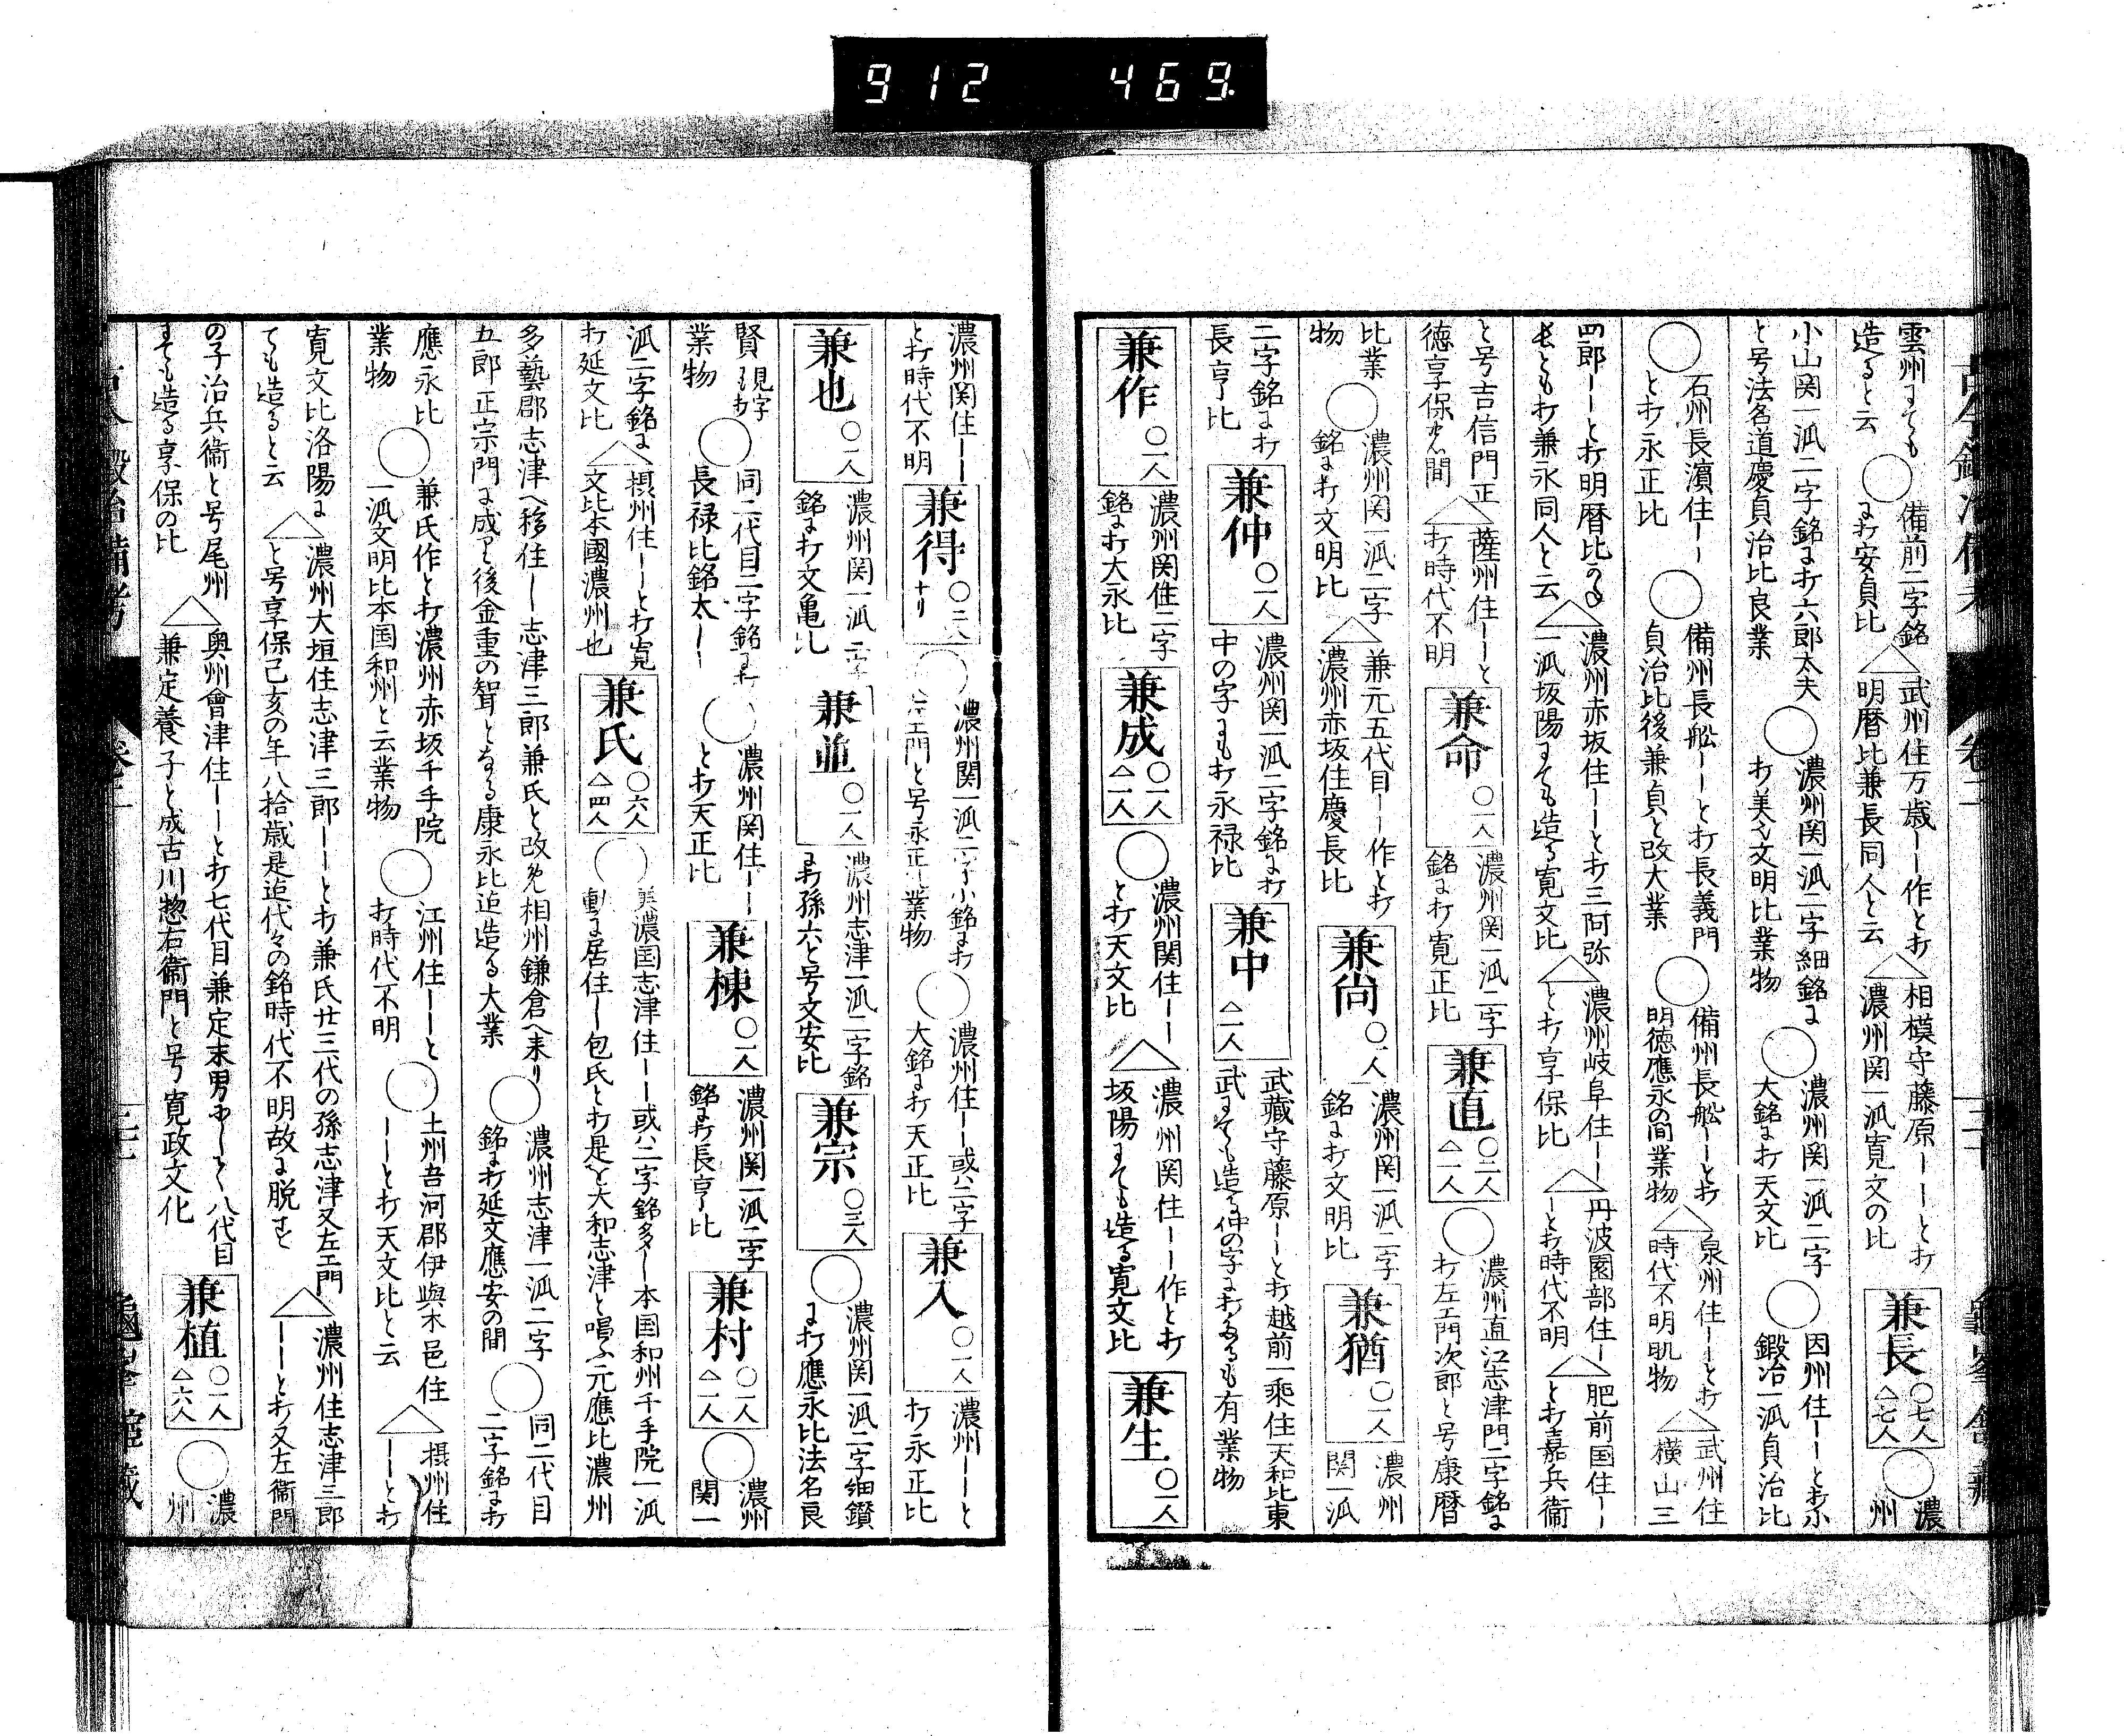 912 469.
雲州にても
造ると云
○備前二字銘
に打安貞比
△武州住万歳——作と打
明暦比兼長同人と云
△相模守藤原——と打
濃州関一派寛文の比
兼長 ○七人 △七人
○濃
州
小山関一派二字銘に打六郎太夫
と号法名道慶貞治比良業
○濃州関一派二字細銘に
打美〻文明比業物
○濃州関一派二字
大銘に打天文比
○因州住——と打小
鍛冶一派貞治比
○石州長濱住——
と打永正比
○備州長船——と打長義門
貞治比後兼貞と改大業
○備州長船——と打
明徳應永の間業物
△泉州住——と打
時代不明肌物
△武州住
横山三
四郎——と打明暦比
とも打兼永同人と云
△濃州赤坂住——と打三阿弥
一派坂陽にても造る寛文比
△濃州岐阜住——
と打享保比
△丹波園部住—
—と打時代不明
△肥前国住—
—と打嘉兵衞
と号吉信門正
徳享保之間
△薩州住——と
打時代不明
兼命 ○一人
濃州関一派二字
銘に打寛正比
兼直 ○二人 △一人
○濃州直江志津門二字銘に
打左エ門次郎と号康暦
比業
物
○濃州関一派二字
銘に打文明比
△兼元五代目——作と打
濃州赤坂住慶長比
兼尚 ○一人
濃州関一派二字
銘に打文明比
兼猶 ○一人
濃州
関一派
二字銘に打
長亨比
兼仲 ○一人
濃州関一派二字銘に打
中の字にも打永禄比
兼中 △一人
武藏守藤原——と打越前一乘住天和比東
武にても造る仲の字に打有業物
兼作 ○一人
濃州関住二字
銘に打大永比
兼成 ○一人 △一人
○濃州関住——
と打天文比
△濃州関住——作と打
坂陽にても造る寛文比
兼生 ○一人
濃州関住——
と打時代不明
兼得 ○三人
○濃州関一派二字小銘に打
エ門と号永正比業物
○濃州住——或ハ二字
大銘に打天正比
兼入 ○一人
濃州——と
打永正比
兼也 ○一人
濃州関一派二字
銘に打文亀比
兼並 ○一人
濃州志津一派二字銘
に打孫六と号文安比
兼宗 ○三人
○濃州関一派二字細鑚
に打應永比法名良
賢
業物
○同二代目二字銘に打
長禄比銘太——
○濃州関住——
と打天正比
兼棟 ○一人
濃州関一派二字
銘に打長亨比
兼村 ○一人 △一人
○濃州
関一
派二字銘に
打延文比
△摂州住——と打寛
文比本國濃州也
兼氏 ○六人 △四人
○美濃国志津住——或ハ二字銘多—本国和州千手院一派
動に居住—包氏と打是と大和志津と唱ふ元應比濃州
多藝郡志津へ移住—志津三郎兼氏と改め相州鎌倉へ来り
五郎正宗門に成と後金重の聟となる康永比迄造る大業
○濃州志津一派二字
銘に打延文應安の間
○同二代目
二字銘に打
應永比
業物
○兼氏作と打濃州赤坂千手院
一派文明比本国和州と云業物
○江州住——と
打時代不明
○土州吾河郡伊與木邑住
——と打天文比と云
△摂州住
——と打
寛文比洛陽に
ても造ると云
△濃州大垣住志津三郎——と打兼氏廿三代の孫志津又左エ門
と号享保己亥の年八拾歳是迄代々の銘時代不明故に脱す
△濃州住志津三郎
——と打又左衞門
の子治兵衞と号尾州
にても造る享保の比
△奥州會津住——と打七代目兼定末男 八代目
兼定養子と成古川惣右衞門と号寛政文化
兼植 ○一人 △六人
○濃
州